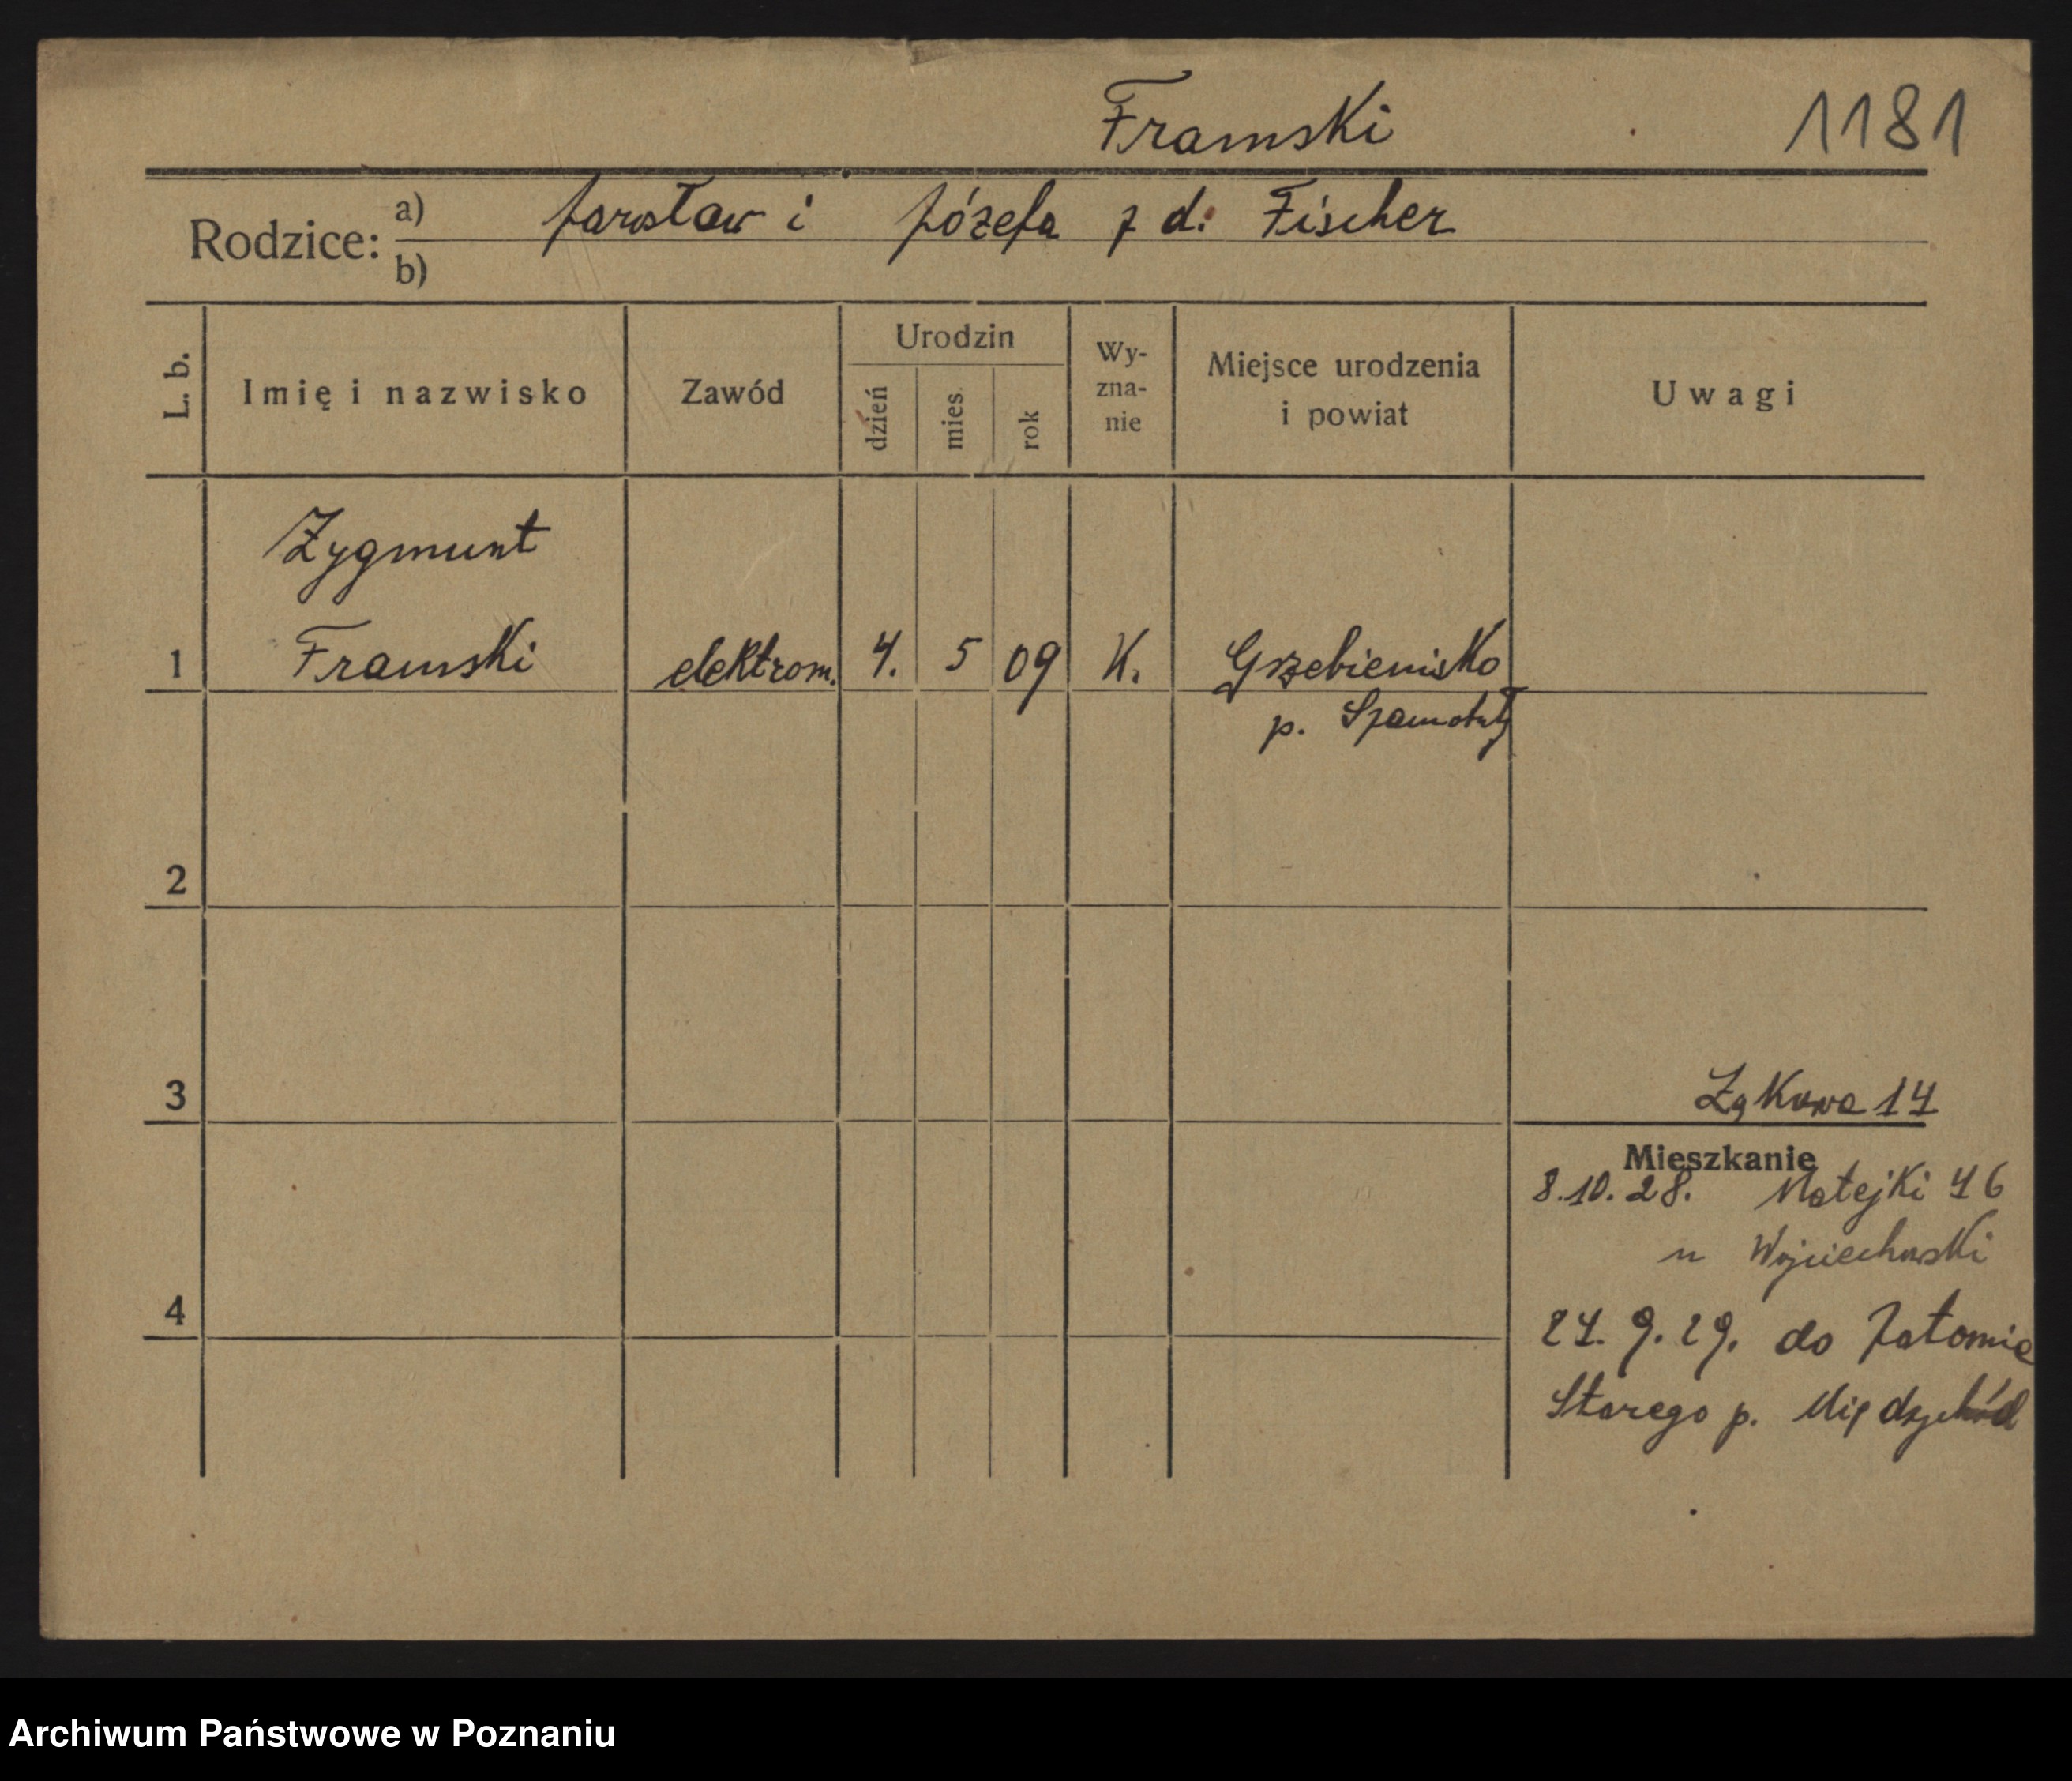 Framski 1181
Rodzice: a) Jarosław i Józefa z d. Fischer
b)
L. b. Imię i nazwisko Zawód Urodzin dzień mies. rok Wy-zna-nie Miejsce urodzenia i powiat Uwagi
Zygmunt
1 Framski elektrom. 4. 5 09 K. Grzebienisko
p. Szamotuły
2
3
Łąkowa 14
Mieszkanie
8.10.28. Matejki 46
u Wojciechowski
4
24. 9. 29. do Zatomie
Starego p. Międzychód
Archiwum Państwowe w Poznaniu